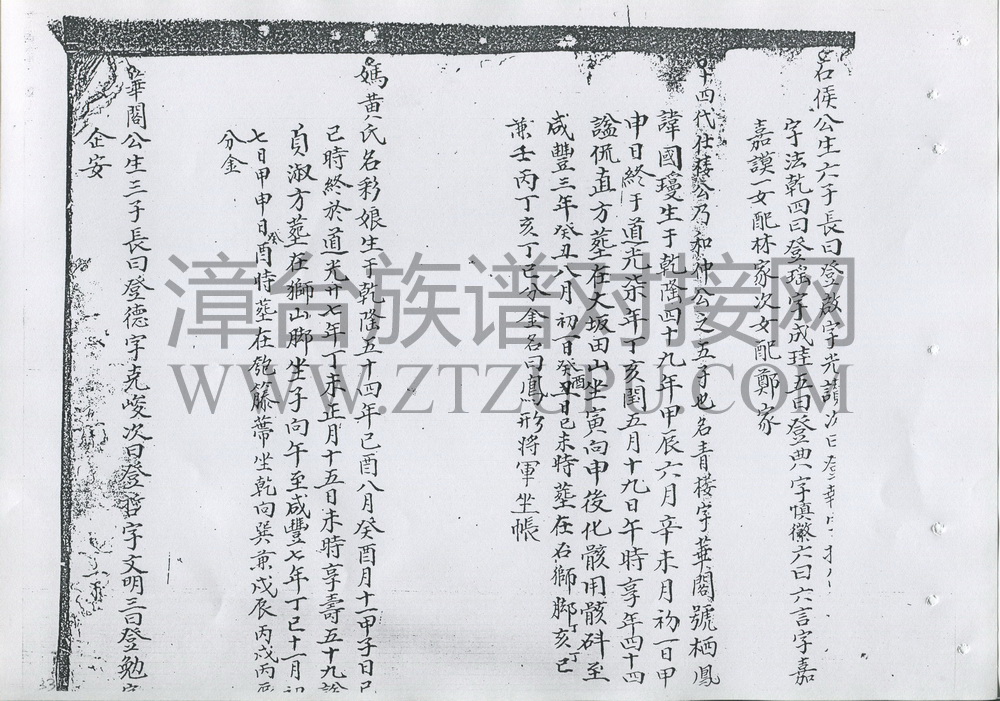 石侯公生六子長曰登啟字光讀次曰登華
字法乾四曰登瑶字成珪五曰登典字慎徽六曰六言字嘉
嘉謨一女配林家次女配鄭家
十四代仕楼公乃和仲公之五子也名青楼字華閣號栖鳳
諱國瓊生于乾隆四十九年甲辰六月辛未月初一日甲
申日終于道光柒年丁亥閏五月十九日午時享年四十四
謚侃直方塟在大坂田山坐寅向申後化骸用骸至
咸豐三年癸丑八月初一日癸丑日己未時塟在石獅脚亥巳
兼壬丙丁亥丁巳分金名曰鳳形將軍坐帳
媽黃氏名彩娘生于乾隆五十四年己酉八月癸酉月十一甲子日己
己時終於道光廿七年丁未正月十五日未時享壽五十九謚
貞淑方塟在獅山脚坐子向午至咸豐七年丁巳十一月初
七日甲申日癸酉時塟在匏藤蒂坐乾向巽兼戌辰丙戌丙辰
分金
華閣公生三子長曰登德字克峻次曰登哲字文明三曰登勉字
企安
漳台族谱对接网
WWW.ZTZUPU.COM